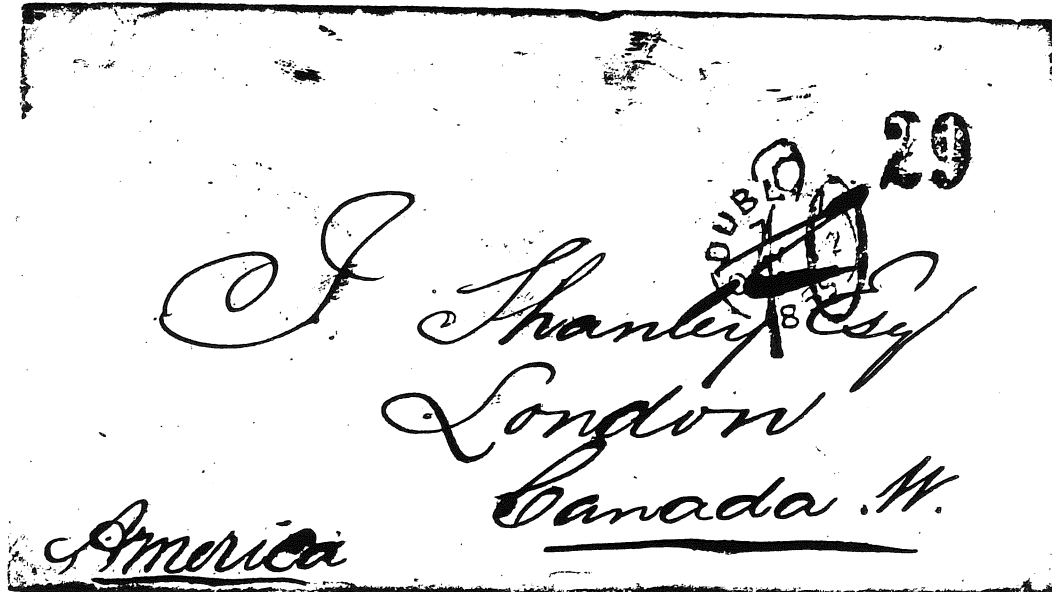 29
DUBL
J. Shanley Esq
London
Canada . W.
America